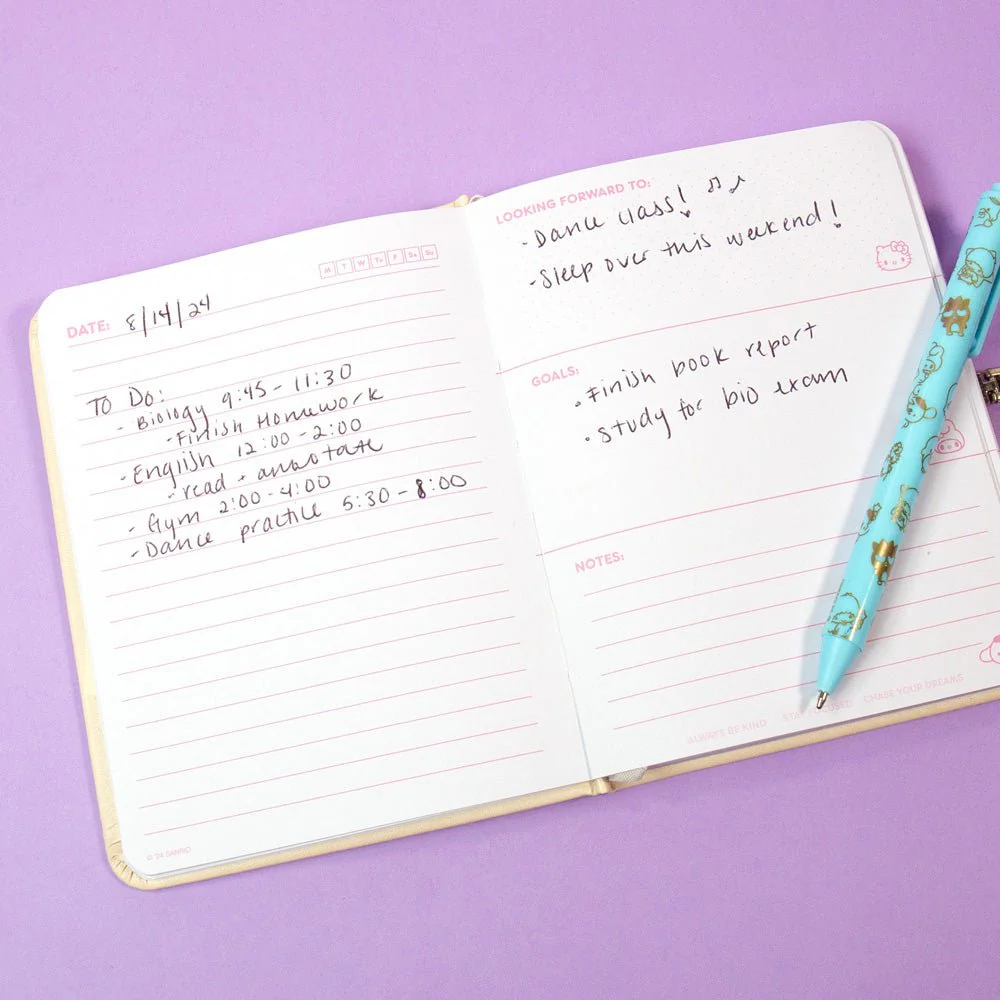 M T W Th F Sa Su
DATE: 8/14/24
TO DO:
- Biology 9:45 - 11:30
- Finish Homework
- English 12:00 - 2:00
- read + annotate
- Gym 2:00 - 4:00
- Dance practice 5:30 - 8:00
© '24 SANRIO
LOOKING FORWARD TO:
- Dance class!
- Sleep over this weekend!
GOALS:
• Finish book report
• study for bio exam
NOTES:
ALWAYS BE KIND STAY FOCUSED CHASE YOUR DREAMS